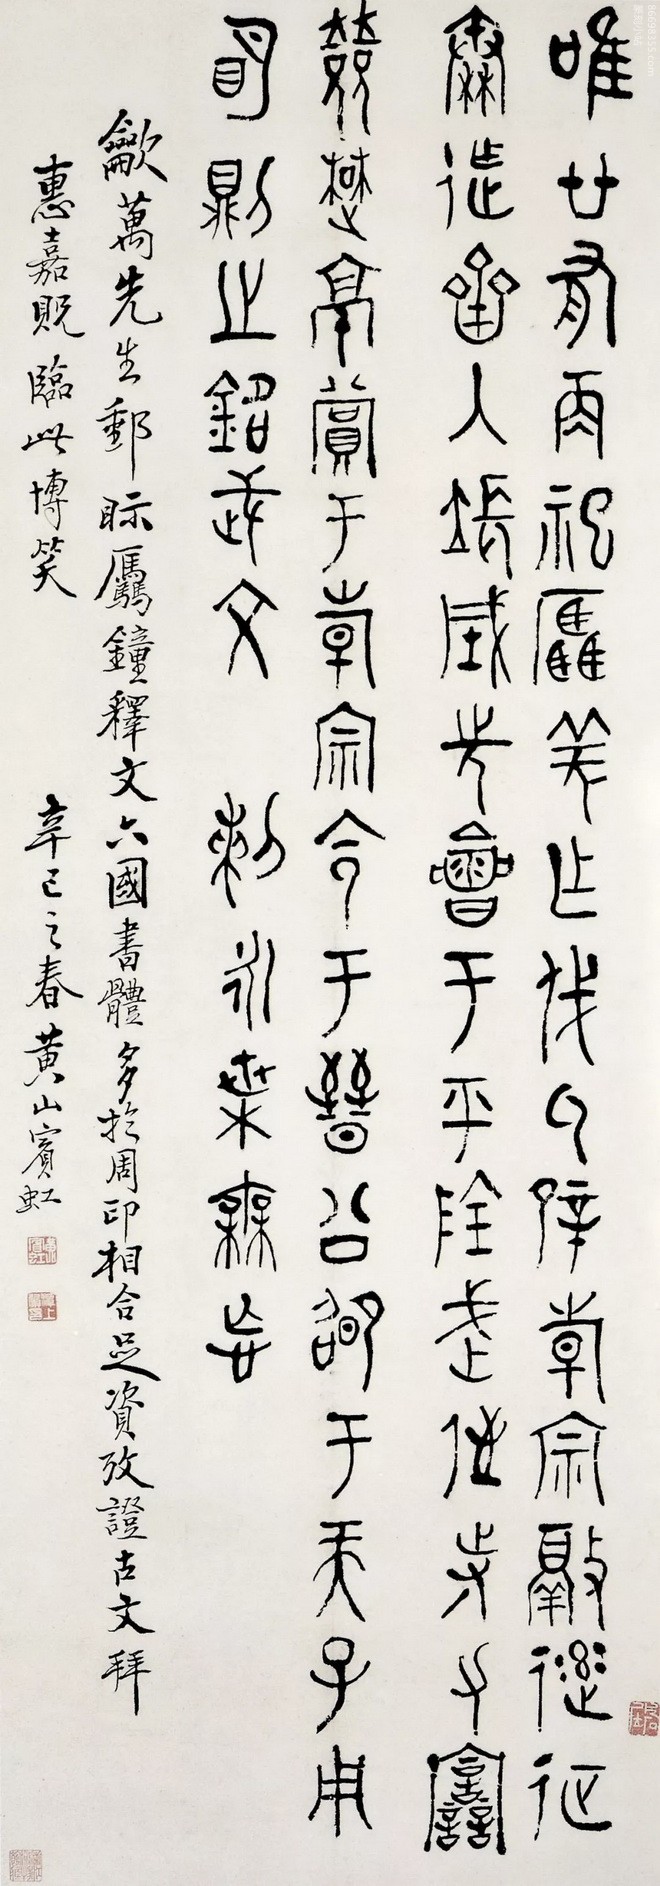 唯廿有再祀驫羌乍戎氒辟倝宗敲征
秦迮齊入長城先會于平陰武侄寺力
敓楚京賞于倝宗令于晉公卲于天子用
明則之銘武文　剌永枼無忘
萬先生郵眎驫鐘釋文六國書體多於周印相合足資攷證古文拜
惠嘉貺臨此博笑　辛巳之春黄山賓虹
86698355.com